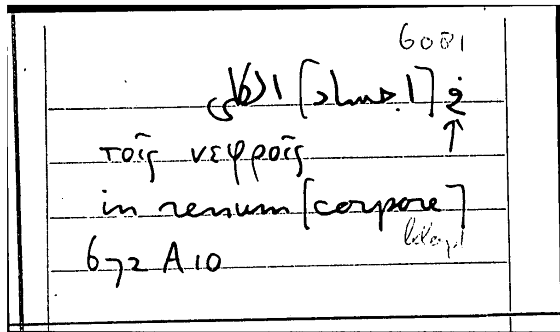 6081
في الكلى
τοῖς νεφροῖς
in renum [corpore]
672 A 10